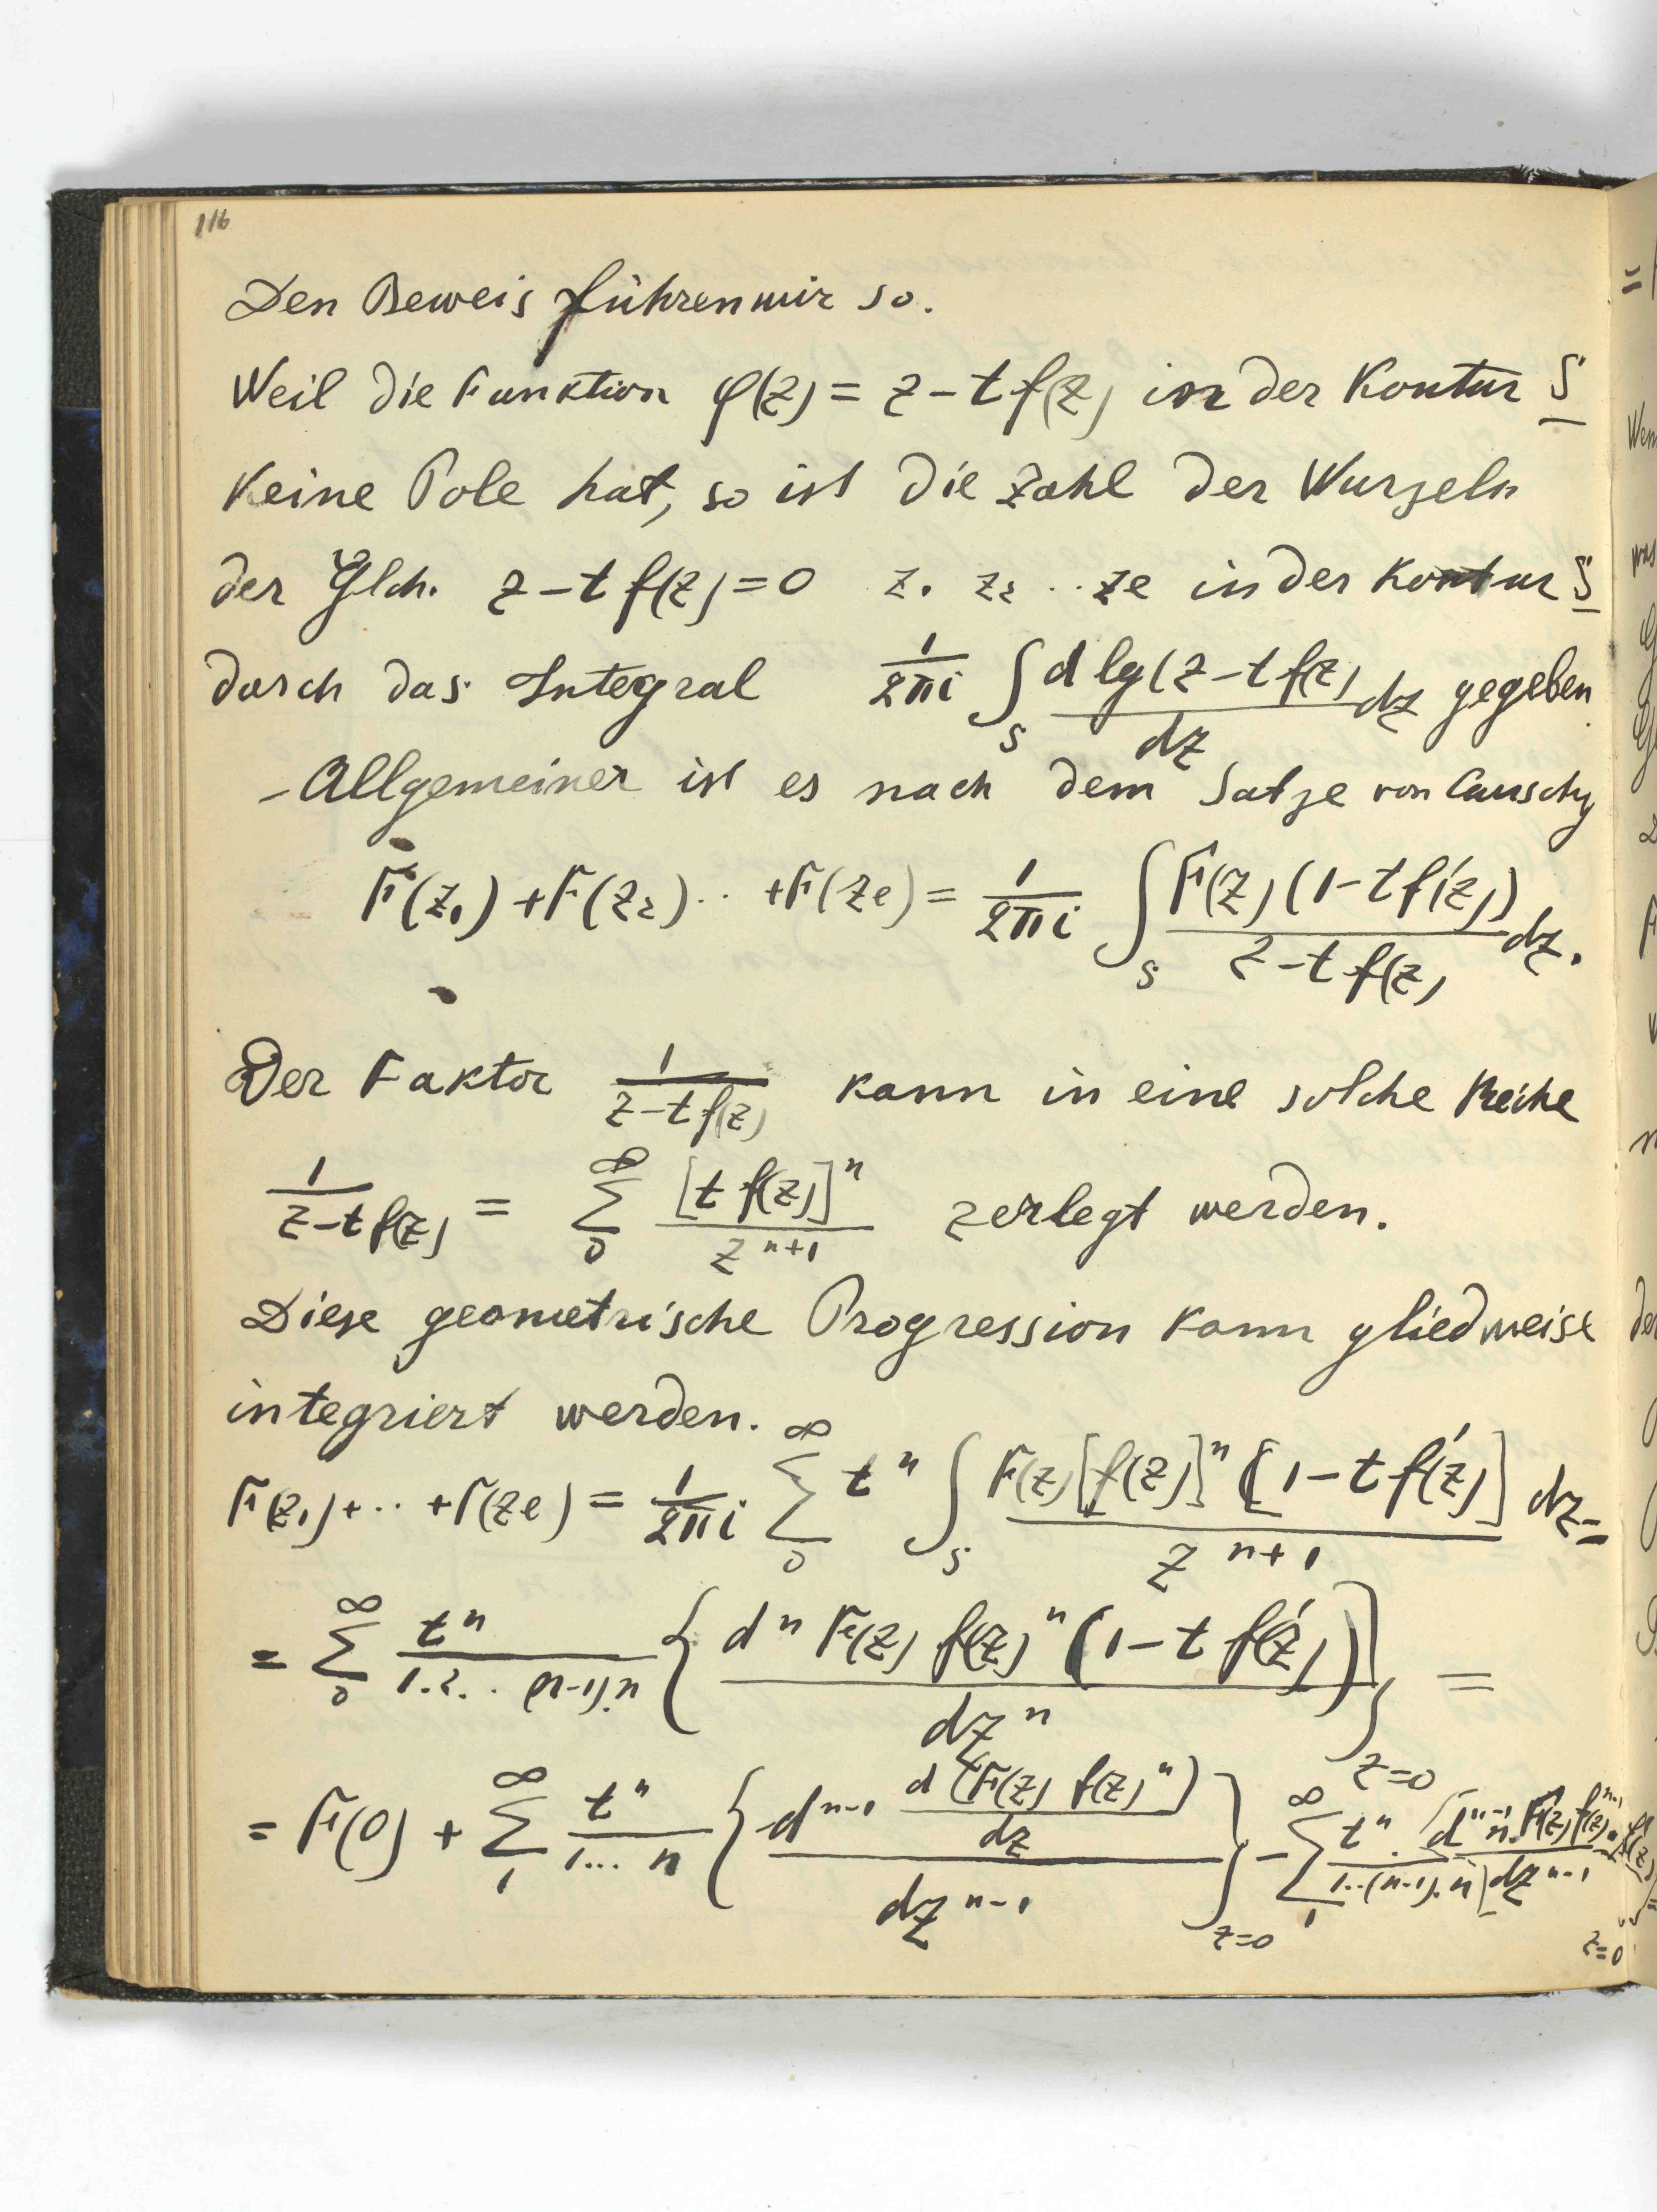 116
Den Beweis führen wir so.
Weil die Funktion φ(z) = z – t f(z) in der Kontur S
keine Pole hat, so ist die Zahl der Wurzeln
der Glch. z – t f(z) = 0 z₁ z₂ .. ze in der Kontur S
durch das Integral 1/2πi ∫_S d lg(z – t f(z)/dz dz gegeben.
– Allgemeiner ist es nach dem Satze von Causchy
F(z₁) + F(z₂) .. + F(ze) = 1/2πi ∫_S F(z)(1 – t f'(z))/z – t f(z) dz.
Der Faktor 1/z – t f(z) kann in eine solche Reihe
1/z – t f(z) = ∑_0^∞ [t f(z)]ⁿ/z^{n+1} zerlegt werden.
Diese geometrische Progression kann gliedweise
integriert werden.
F(z₁) + .. + F(ze) = 1/2πi ∑_0^∞ tⁿ ∫_S F(z)[f(z)]ⁿ[1 – t f'(z)]/z^{n+1} dz =
= ∑_0^∞ tⁿ/1.2...(n-1).n {dⁿ F(z) f(z)ⁿ (1 – t f'(z))/dzⁿ}_{z=0} =
= F(0) + ∑_1^∞ tⁿ/1... n {d^{n-1} d(F(z) f(z)ⁿ)/dz / dz^{n-1}}_{z=0} – ∑_1^∞ tⁿ/1..(n-1).n {d^{n-1} n.F(z) f(z)^{n-1}. / dz^{n-1}}_{z=0}